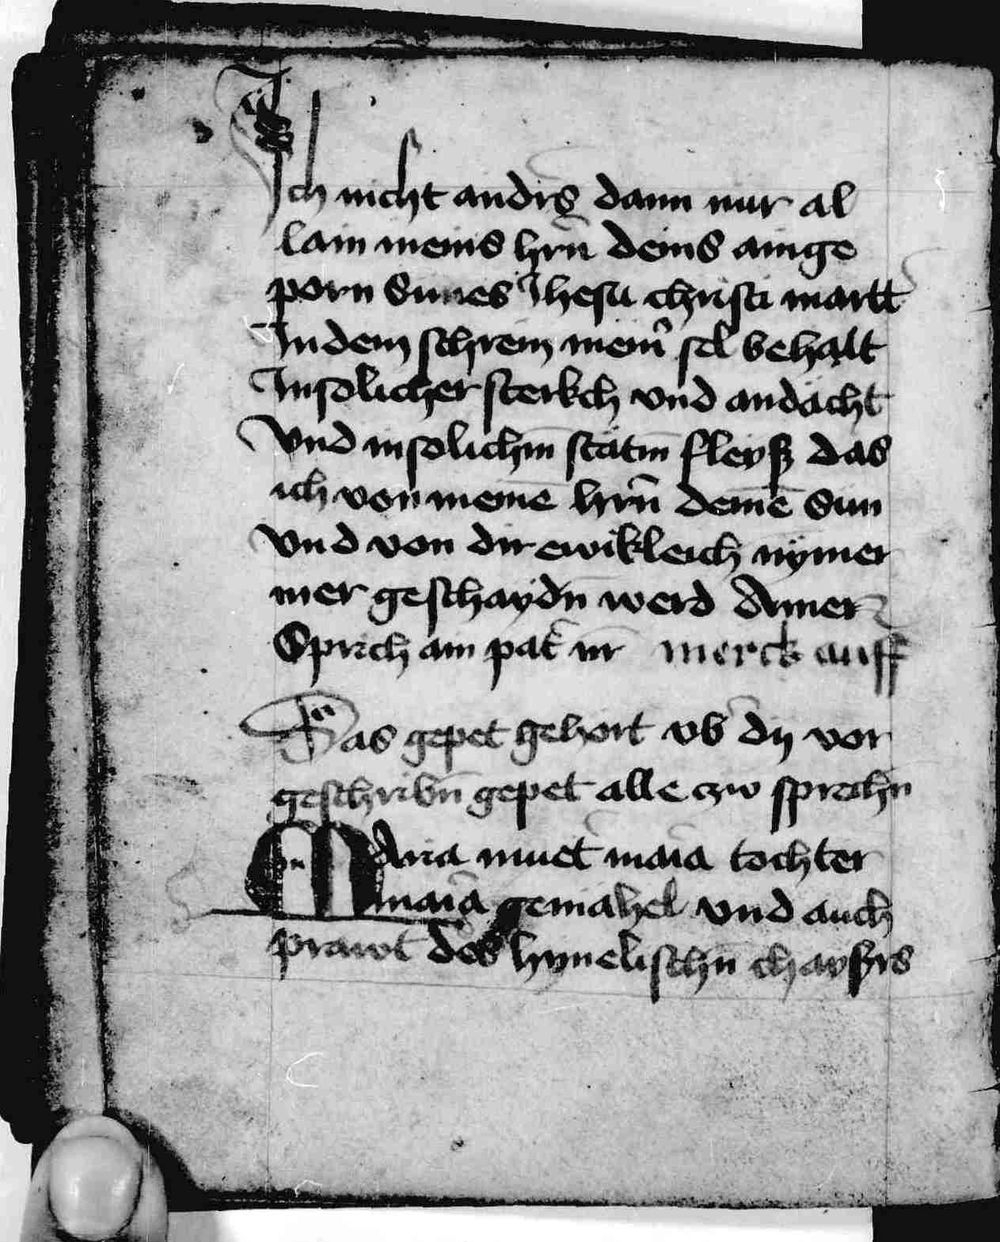 Ich nicht andirs dann nur al
lain meins hrn̄ deins ainge
porn Sunes Jhesu christi martt
In dem schrein mein̾ sel behalt
In solicher sterkch vnd andacht
Vnd in solichm̄ stätm̄ fleyß das
ich von meinē hrn̄ deinē Sun
Vnd von dir ewikleich nȳmer
mer geschaydn̄ werd Amen
Sprich ain pat̄ nr̄ merck auff
Das gepet gehort vb̄ dy vor
geschribn̄ gepet alle czw sprechn̄
MAria muet̾ maīa tochter
maīa gemahel vnd auch
prawt des hym̄elischn̄ chaysers